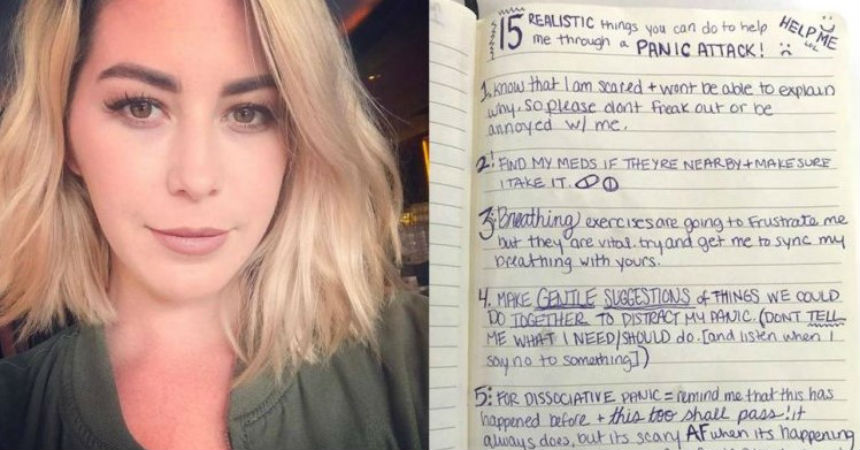 15 REALISTIC things you can do to help
me through a PANIC ATTACK!
HELP
ME
LOL
1. Know that I am scared + wont be able to explain
why. So please dont freak out or be
annoyed w/ me.
2: FIND MY MEDS IF THEYRE NEARBY + MAKE SURE
I TAKE IT.
3: Breathing exercises are going to frustrate me
but they are vital. try and get me to sync my
breathing with yours.
4. MAKE GENTLE SUGGESTIONS of THINGS WE COULD
DO TOGETHER TO DISTRACT MY PANIC. (DONT TELL
ME WHAT I NEED/SHOULD do. [and listen when I
say no to something])
5: FOR DISSOCIATIVE PANIC = remind me that this has
happened before + this too shall pass! it
always does, but its scary AF when its happening